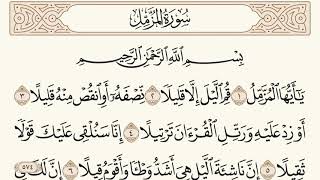 سُورَةُ المُزَّمِّلِ
بِسْمِ ٱللَّهِ ٱلرَّحْمَٰنِ ٱلرَّحِيمِ
يَٰٓأَيُّهَا ٱلْمُزَّمِّلُ ١ قُمِ ٱلَّيْلَ إِلَّا قَلِيلًا ٢ نِّصْفَهُۥٓ أَوِ ٱنقُصْ مِنْهُ قَلِيلًا ٣
أَوْ زِدْ عَلَيْهِ وَرَتِّلِ ٱلْقُرْءَانَ تَرْتِيلًا ٤ إِنَّا سَنُلْقِى عَلَيْكَ قَوْلًا
ثَقِيلًا ٥ إِنَّ نَاشِئَةَ ٱلَّيْلِ هِىَ أَشَدُّ وَطْـًٔا وَأَقْوَمُ قِيلًا ٦ إِنَّ لَكَ فِى
٥٧٤